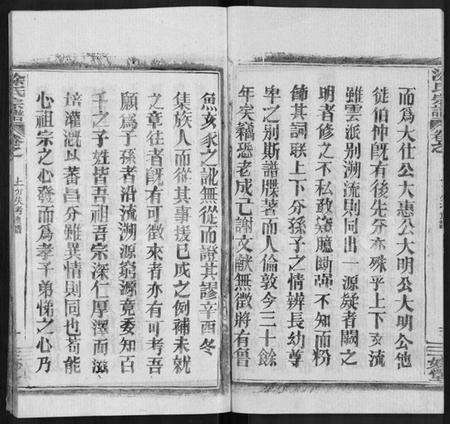 而為大仕公大惠公大明公大明公他
徒伯仲既有後先分亦殊乎上下支流
雖雲派別溯流則同出一源疑者闕之
明者修之不私政竊臆斷強不知而粉
飾其詞聯上下分孫子之情辨長幼尊
卑之別斯譜牒著而人倫敦今三十餘
年矣竊恐老成已謝文獻無徵將有魯
魚亥豕之訛無從而證其謬辛酉冬
集族人而從其事援已成之例補未就
之章往者既有可徵來者亦有可考吾
願為子孫者沿流溯源窮源竟委知百
千之子姓皆吾祖吾宗深仁厚澤而滋
培灌溉以蕃昌分雖異情則同也苟能
心祖宗之心發而為孝子弟悌之心乃
涂氏宗譜
卷之